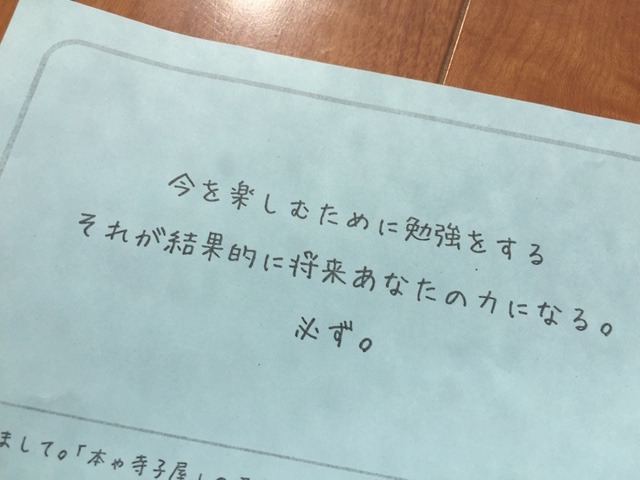 今を楽しむために勉強をする
それが結果的に将来あなたの力になる。
必ず。
まして。「本や寺子屋」の